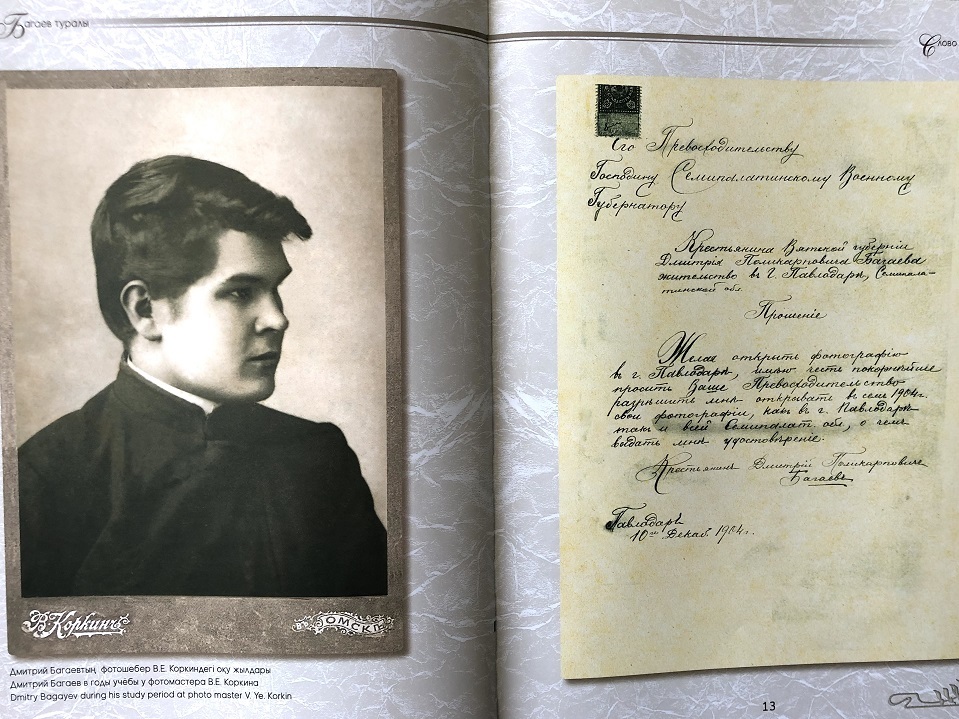 Багаев туралы
В. Коркинъ
въ ОМСКѢ
Дмитрий Багаевтың фотошебер В.Е. Коркиндегі оқу жылдары
Дмитрий Багаев в годы учёбы у фотомастера В.Е. Коркина
Dmitry Bagayev during his study period at photo master V. Ye. Korkin
Слово
Его Превосходительству
Господину Семипалатинскому Военному
Губернатору
Крестьянина Вятской губернiи
Дмитрiя Поликарповича Багаева
жительство въ г. Павлодарѣ, Семипала-
тинской обл.
Прошенiе
Желая открыть фотографiю
въ г. Павлодарѣ, имѣю честь покорнѣйше
просить Ваше Превосходительство
разрѣшить мнѣ открывать въ семъ 1904г.
свои фотографiи, какъ въ г. Павлодарѣ
такъ и всей Семипалат. обл., о чемъ
выдать мнѣ удостовѣренiе.
Крестьянинъ Дмитрiй Поликарповичъ
Багаевъ
Павлодаръ
10го Декаб. 1904г.
13